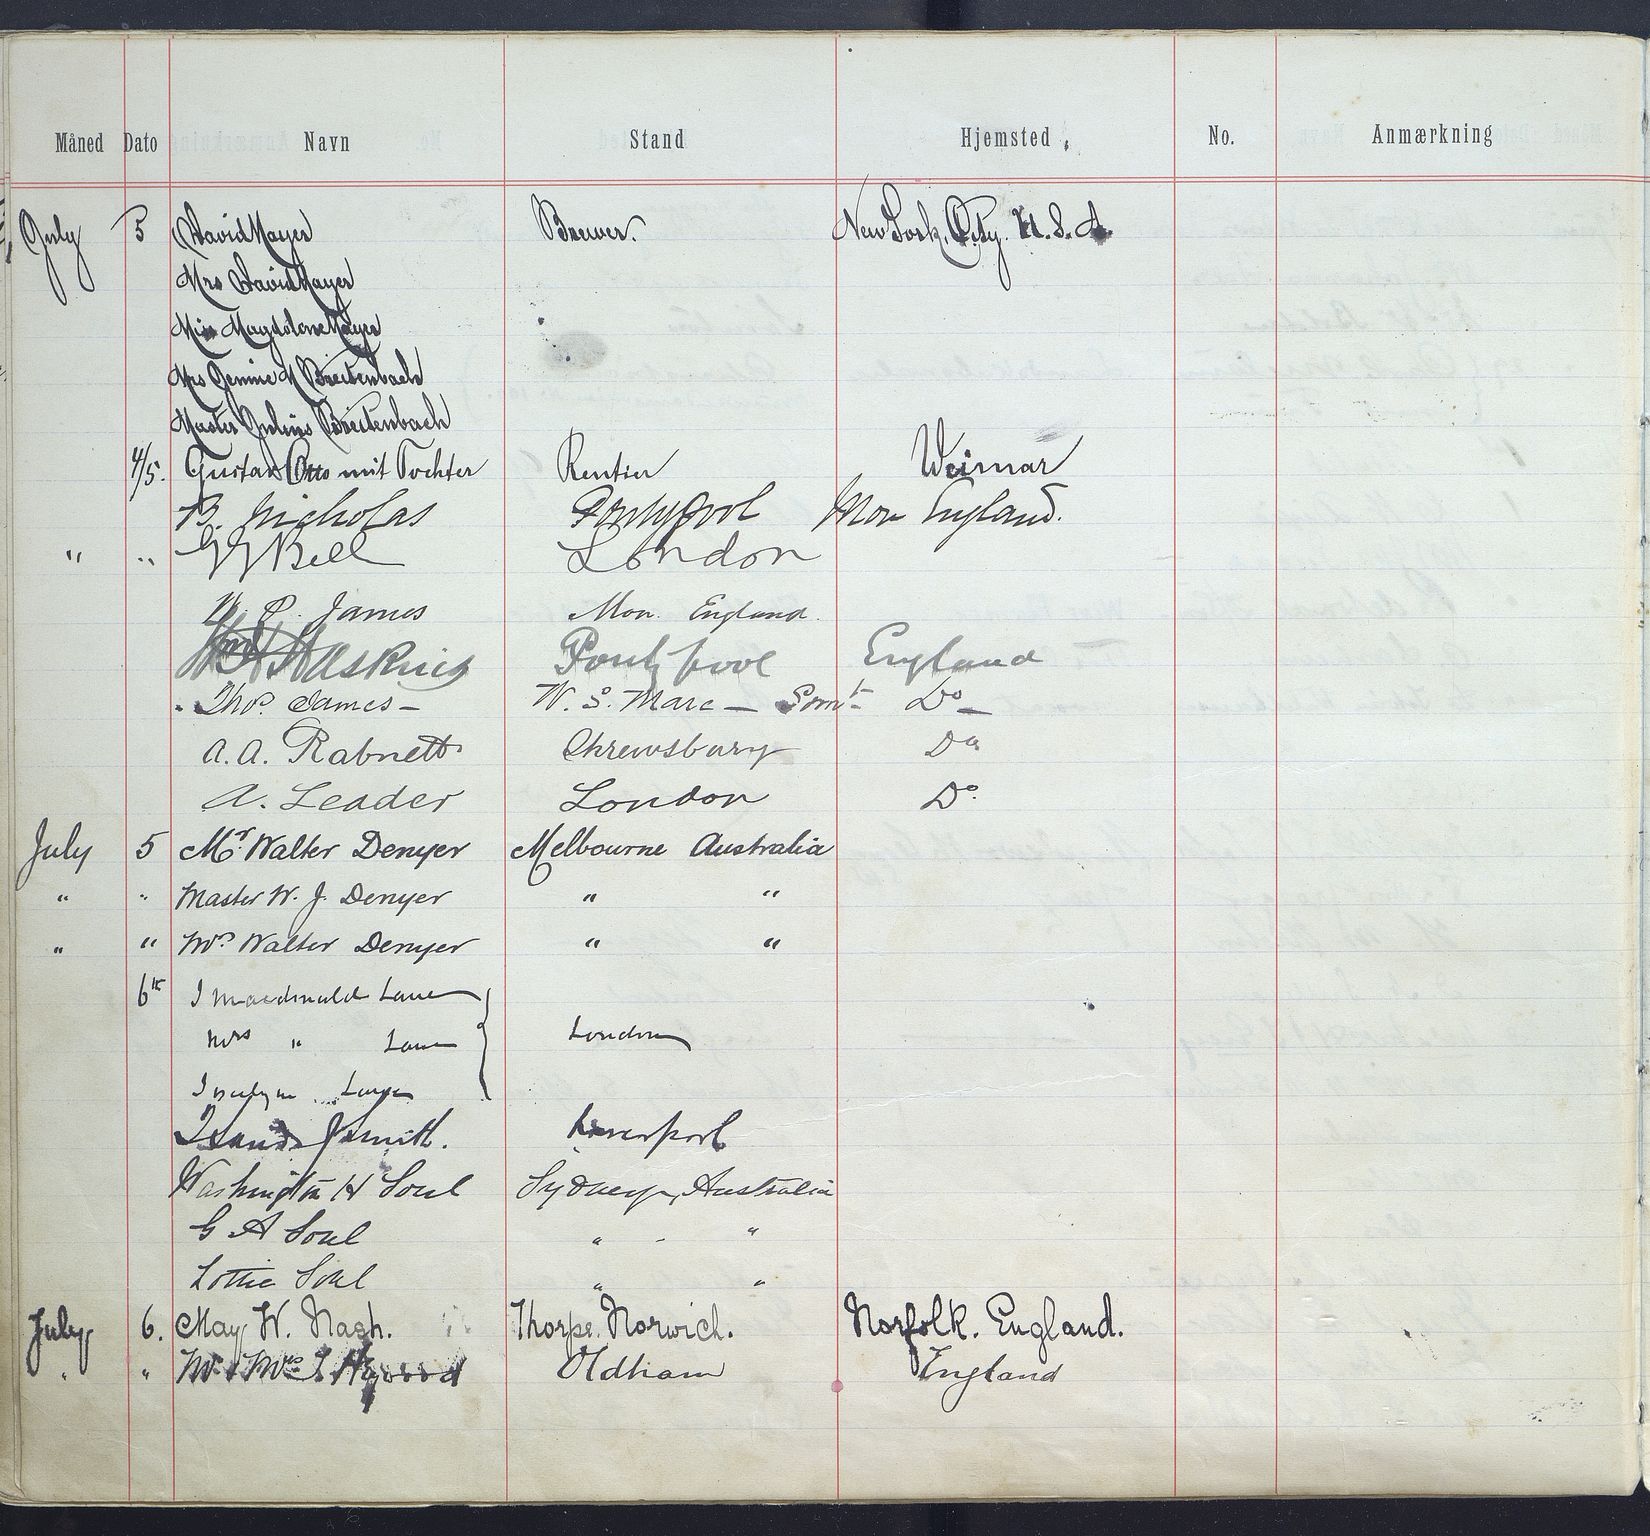 Måned Dato Navn Stand Hjemsted No. Anmærkning
July 5 David Mayer Brewer. New York City. U. S. A.
Mrs David Mayer
Miss Magdalene Mayer
Mrs Jennie M Breitenbach
Master Julius Breitenbach
4/5. Gustav Otto mit Tochter Rentier Weimar
B. Nicholas Pontypool Mon England.
" " Bell London
W. P. James Mon. England.
Haskins Pontypool England
Thos. James – W. S. Mare – Somt – Do –
A. A. Rabnett Shrewsbury Do
A. Leader London Do.
July 5 Mr. Walter Denyer Melbourne Australia
" " Master W. J. Denyer " "
" " Mrs Walter Denyer " "
6th J Macdonald Lane
Mrs " Lane London
Jocelyn Lane
Smith. Liverpool
Washington H Soul Sydney, Australia
G A Soul " - "
Lottie Soul " "
July 6. May W. Nash. Thorpe. Norwich. Norfolk. England.
" " Mr & Mrs Oldham England